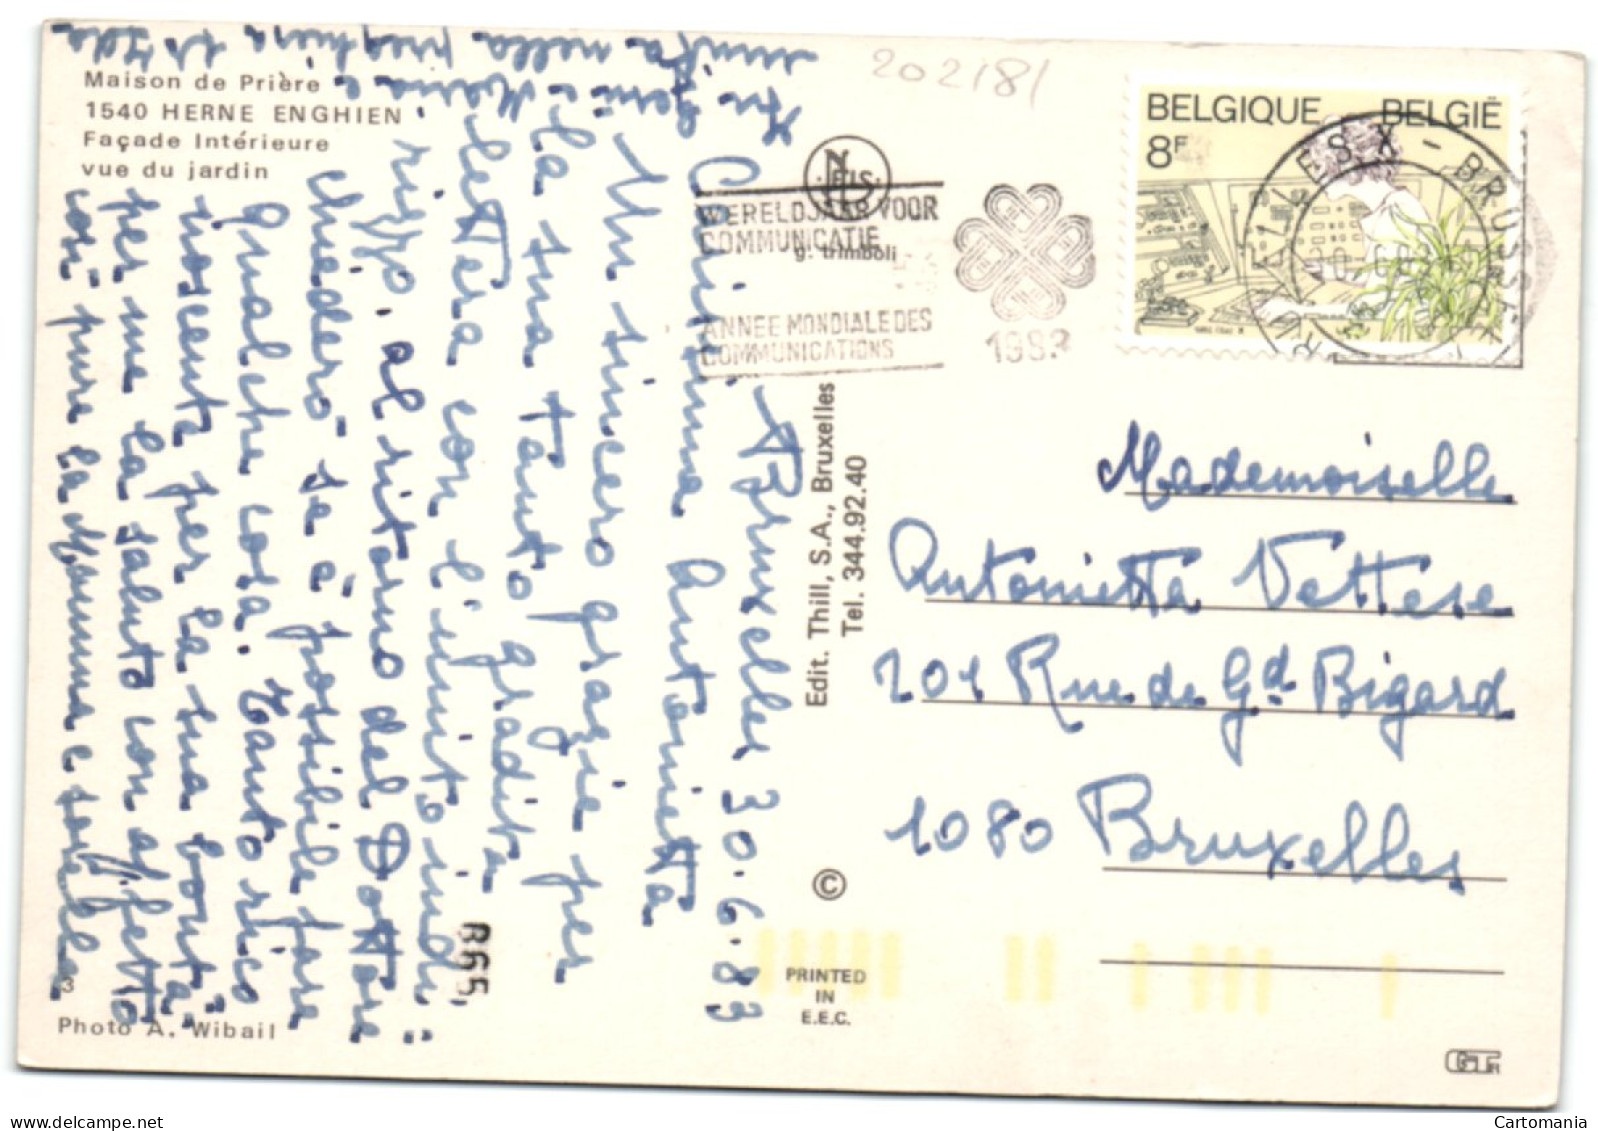 Maison de Prière
1540 HERNE ENGHIEN
Façade Intérieure
vue du jardin
202181
BELGIQUE BELGIË
8F
NELS
WERELDJAAR VOOR
COMMUNICATIE
g. trimboli
ANNEE MONDIALE DES
COMMUNICATIONS
1983
Bruxelles 30.6.83
Carissima Antonietta
Un sincero grazie per
la tua tanto gradita
lettera con l'unito indi-
rizzo. al ritorno del Dottore
chiederò se è possibile fare
qualche cosa. Tanto rico
noscente per la tua bontà
per me la saluto con affetto
così pure la Mamma e sorelle
unita nella preghiera
Edit. Thill, S.A., Bruxelles
Tel. 344.92.40
Mademoiselle
Antonietta Vettese
201 Rue de Gd Bigard
1080 Bruxelles
©
865
PRINTED
IN
E.E.C.
3
Photo A. Wibail
Cartomania